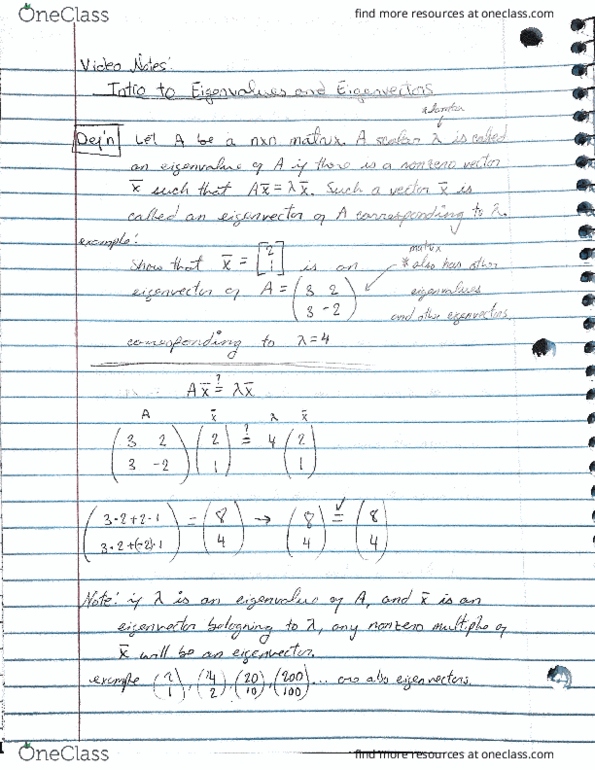 OneClass find more resources at oneclass.com
Video Notes:
Intro to Eigenvalues and Eigenvectors
Def'n Let A be a nxn matrix. A scalar λ is called
an eigenvalue of A if there is a nonzero vector
x̄ such that Ax̄ = λx̄. Such a vector x̄ is
called an eigenvector of A corresponding to λ.
example:
Show that x̄ = [2 1] is an
matrix
* also has other
eigenvector of A = (3 2
3 -2)
eigenvalues
and other eigenvectors
corresponding to λ=4
Ax̄ ?= λx̄
A x̄ λ x̄
(3 2 (2 ?= 4 (2
3 -2) 1) 1)
(3·2+2·1 = (8 → (8 ✓= (8
3·2+(-2)·1) 4) 4) 4)
Note: if λ is an eigenvalue of A, and x̄ is an
eigenvector belogning to λ, any nonzero multiple of
x̄ will be an eigenvector.
example (2 1), (4 2), (20 10), (200 100) ... are also eigenvectors.
OneClass find more resources at oneclass.com